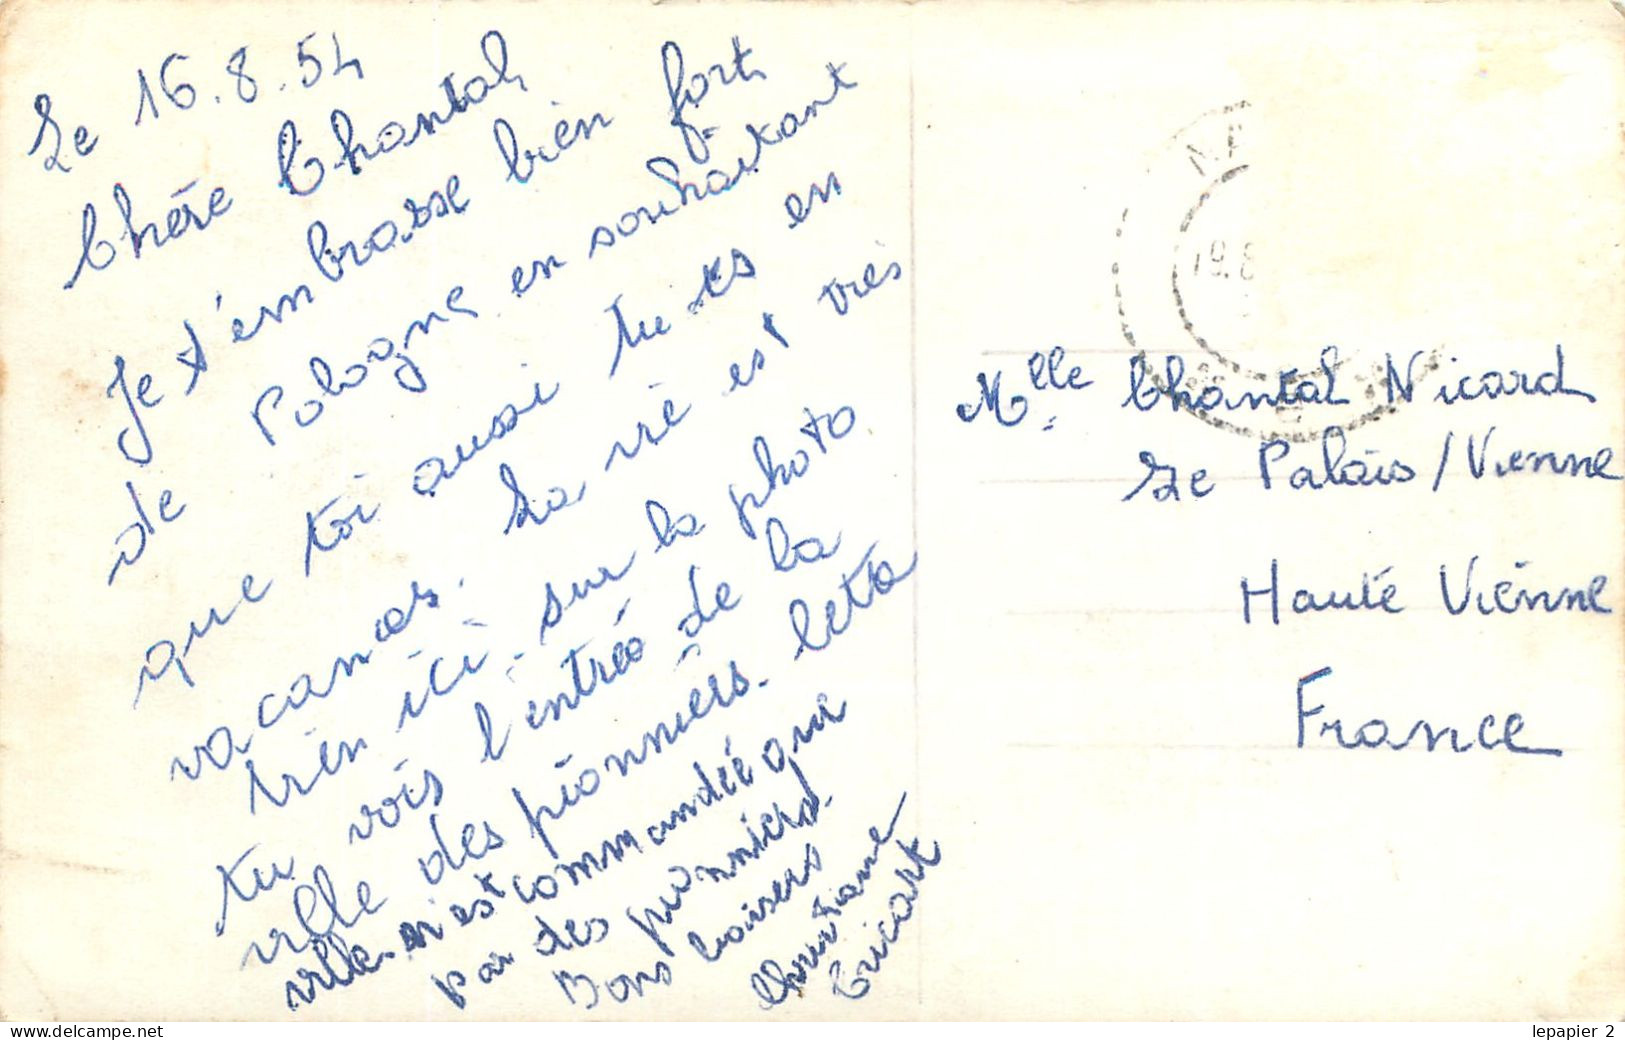 Le 16.8.54
Chère Chantal
Je t'embrasse bien fort
de Pologne en souhaitant
que toi aussi tu es en
vacances. La vie est très
bien ici. Sur la photo
tu vois l'entrée de la
ville des pionniers. Cette
ville n'est commandée que
par des pionniers.
Bons baisers
Christiane
Tricart
Mlle Chantal Nicard
Le Palais / Vienne
Haute Vienne
France
19.8
lepapier 2